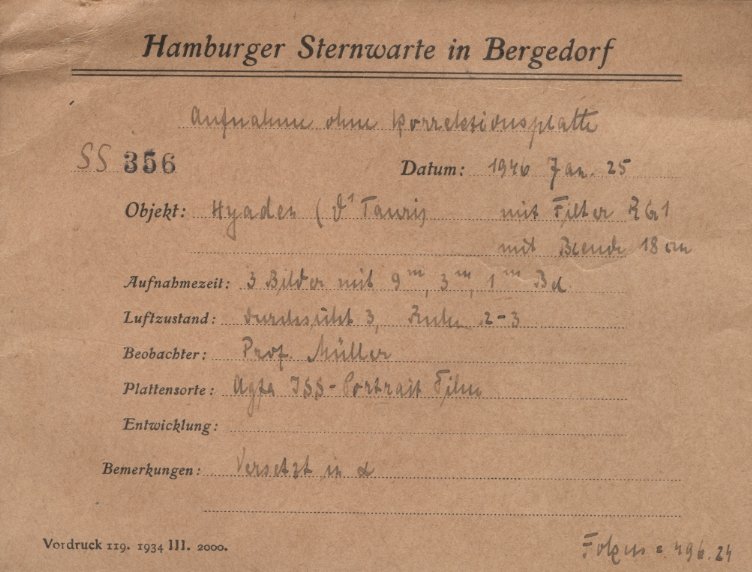 Hamburger Sternwarte in Bergedorf
Aufnahme ohne Korrektionsplatte
SS 356 Datum: 1946 Jan. 25
Objekt: Hyaden ( Tauri) mit Filter RG1
mit Blende 18 cm
Aufnahmezeit: 3 Bilder mit 9ᵐ, 3ᵐ, 1ᵐ Bd
Luftzustand: Durchsicht 3, Ruhe 2-3
Beobachter: Prof Müller
Plattensorte: Agfa ISS-Portrait Film
Entwicklung:
Bemerkungen: Versetzt in α
Vordruck 119. 1934 III. 2000. Fokus = 496.24